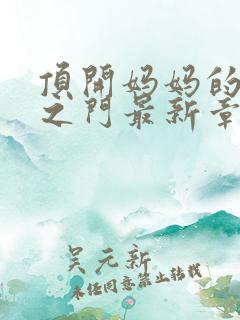 頂開妈妈的
之门最新章
吴元新
未经同意禁止转载